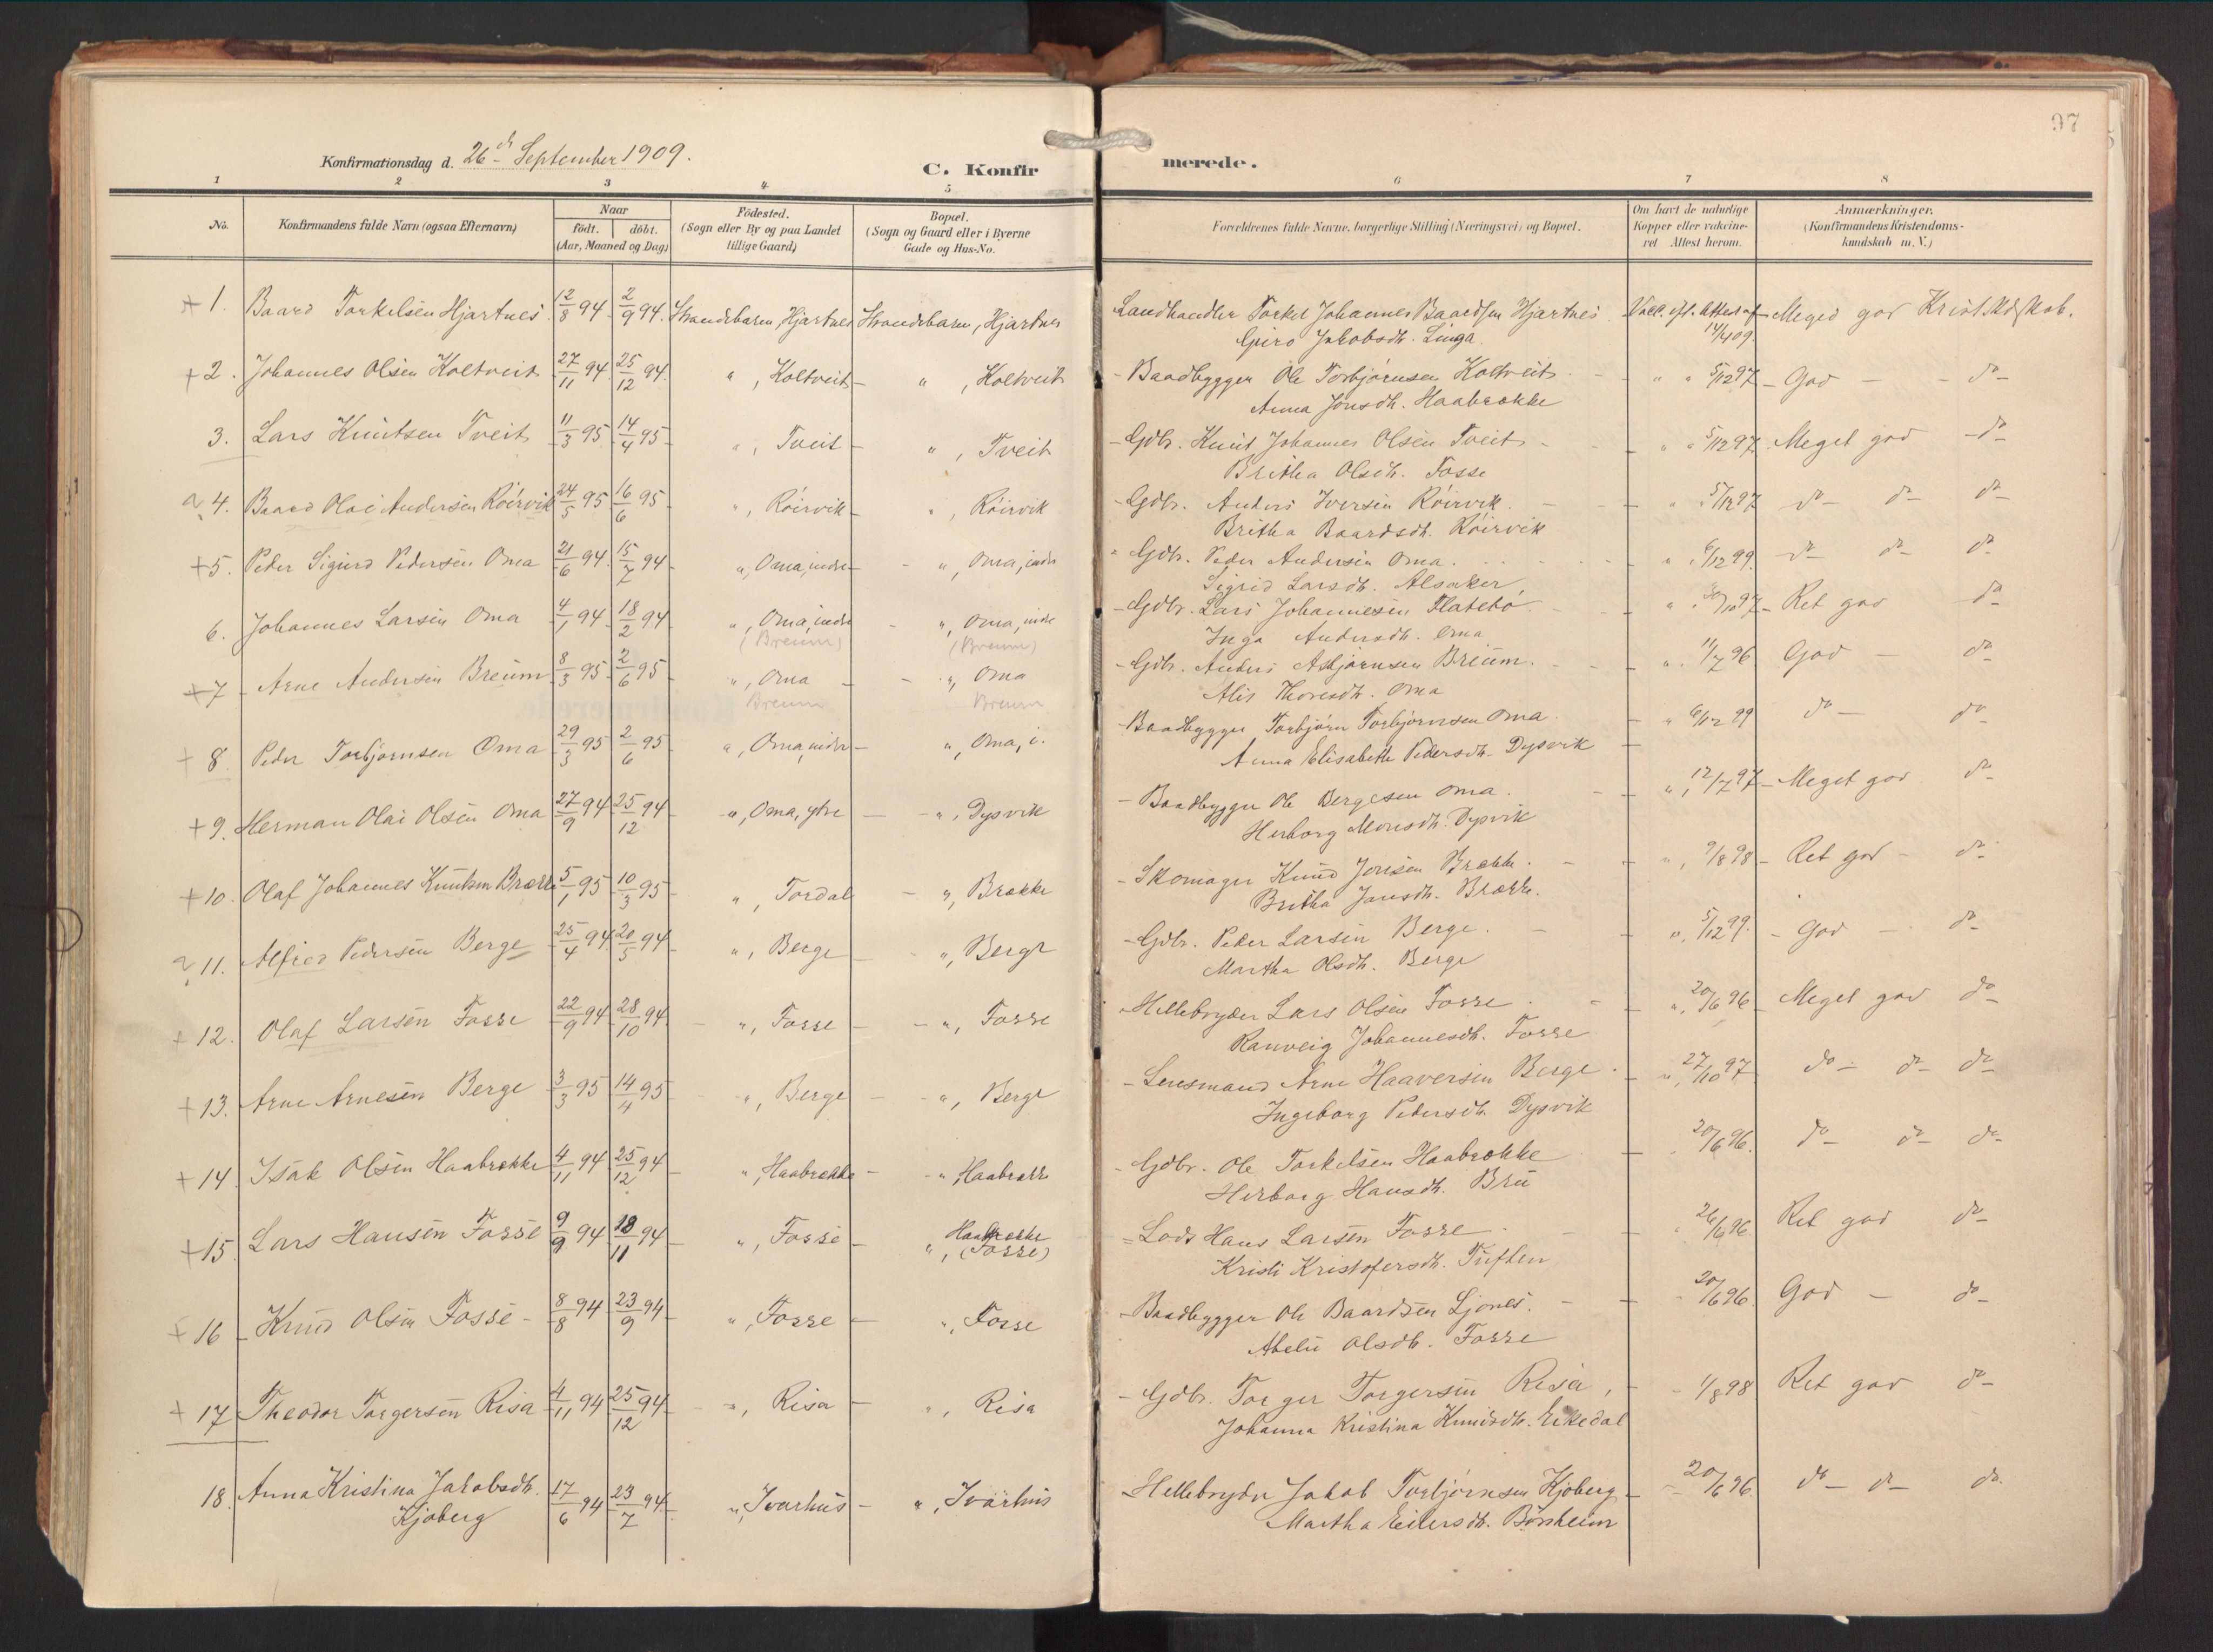 97
Konfirmationsdag d. 26de September 1909.
C. Konfirmerede.
1 2 3 4 5 6 7 8
No. Konfirmandens fulde Navn (ogsaa Efternavn) Naar født. døbt. (Aar, Maaned og Dag) Fødested. (Sogn eller By og paa Landet tillige Gaard) Bopæl. (Sogn og Gaard eller i Byerne Gade og Hus-No. Forældrenes fulde Navne, borgerlige Stilling (Næringsvei) og Bopæl. Om havt de naturlige Kopper eller vakcineret Attest herom. Anmærkninger. (Konfirmandens Kristendomskundskab m. V.)
+ 1. Baard Torkelsen Hjartnes 12/8 94 2/9 94. Strandebarm, Hjartnes Strandebarm, Hjartnes Landhandler Torkel Johannes Baardsen Hjartnes Vacc. ifl. Attest af Meged god Krist.kdskab.
Guro Jakobsdt. Linga 14/4 09.
+ 2. Johannes Olsen Koltveit 27/11 94 25/12 94. " , Koltveit - " , Koltveit - Baadbygger Ole Torbjørnsen Koltveit - " " 5/12 97 - God - - do -
Anna Jonsdt. Haabrække
3. Lars Knutsen Tveit 11/3 95 14/4 95 - " , Tveit - " , Tveit - Gdbr. Knut Johannes Olsen Tveit - " " 5/12 97 Meget god - do -
Britha Olsdt. Fosse
4. Baard Olai Andersen Røirvik 24/5 95 16/6 95 " , Røirvik - " , Røirvik - Gdbr. Anders Iversen Røirvik. - " 5/12 97 do - do - do -
Britha Baardsdt. Røirvik
+ 5. Peder Sigurd Pedersen Oma 21/6 94 15/7 94 " , Oma, indre - " , Oma, indre - Gdbr. Peder Andersen Oma. " 6/12 99. do - do - do -
Sigrid Larsdt. Alsaker
6. Johannes Larsen Oma 4/1 94 18/2 94 " , Oma, indre (Breum) - " , Oma, indre (Breum) - Gdbr. Lars Johannesen Flatebø. - " 30/10 97 - Ret god do -
Inga Andersdt. Oma
+ 7 - Arne Andersen Breum 8/3 95 2/6 95 " , Oma Breum - " , Oma Breum - Gdbr. Anders Asbjørnsen Breum. - " 11/7 96 God - do -
Alis Thoresdt. Oma
+ 8. Peder Torbjørnsen Oma 29/3 95 2/6 95 " , Oma, indre - " , Oma, i. - Baadbygger Torbjørn Torbjørnsen Oma. - " 6/12 99 do - do -
Anna Elisabeth Pedersdt. Dysvik
+ 9. Herman Olai Olsen Oma 27/9 94 25/12 94 " , Oma, ytre - " , Dysvik - Baadbygger Ole Bergesen Oma. " , 12/7 97 - Meget god do -
Herborg Monsdt. Dysvik
+ 10. Olaf Johannes Knutsen Brække 5/1 95 10/3 95 " , Tordal - " , Brække - Skomager Knud Jonsen Brække. - " , 9/8 98 - Ret god - do -
Britha Jansdt. Brække.
11. Alfred Pedersen Berge 25/4 94 20/5 94 " , Berge - " , Berge - Gdbr. Peder Larsen Berge. - " , 5/12 99. - God - do -
Martha Olsdt. Berge
+ 12. Olaf Larsen Fosse 22/9 94 28/10 94 - " , Fosse - " , Fosse - Hellebryder Lars Olsen Fosse. - " , 20/6 96 - Meget god do -
Ranveig Johannesdt. Fosse
+ 13. Arne Arnesen Berge 3/3 95 14/4 95 - " , Berge - " , Berge - Lensmand Arne Haaversen Berge. - " , 27/10 97 do - do - do -
Ingeborg Pedersdt. Dysvik
+ 14. Isak Olsen Haabrække 4/11 94 25/12 94 - " , Haabrække - " , Haabrække - Gdbr. Ole Torkelsen Haabrække - 20/6 96. do - do - do -
Herborg Hansdt. Bru
+ 15. Lars Hansen Fosse 9/9 94 18/11 94 - " , Fosse - Haabrække " , (Fosse) - Lods Hans Larsen Fosse - 26/6 96 Ret god do -
Kristi Kristofersdt. Tuften
+ 16 - Knud Olsen Fosse - 8/8 94 23/9 94 - " , Fosse - " , Fosse - Baadbygger Ole Baardsen Ljones. - 20/6 96 God - do -
Abelu Olsdt. Fosse
+ 17 Theodor Torgersen Risa 4/11 94 25/12 94 - " , Risa - " , Risa - Gdbr. Torger Torgersen Risa, - 1/8 98 Ret god do -
Johanna Kristina Knudsdt. Eikedal
18. Anna Kristina Jakobsdt. Kjøberg 17/6 94 23/7 94 " , Ivarhus - " , Ivarhus - Hellebryder Jakob Torbjørnsen Kjøberg - 20/6 96 do - do - do.
Martha Eilersdt. Børsheim